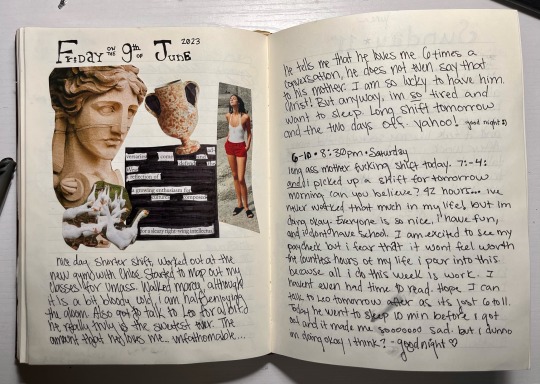 Friday on the 9th of June 2023
versaries come
reflection of
a growing enthusiasm for
culture composed
for a sleazy right-wing intellectual
nice day, shorter shift, worked out at the
new gym with Chloe. Started to map out my
classes for Umass. Walked marcy, although
it is a bit bloody cold, i am half enjoying
the gloom. Also got to talk to Leo for a bit
he really truly is the sweetest ever. The
amount that he loves me... unfathomable...
he tells me that he loves me 6 times a
conversation, he does not even say that
to his mother. I am so lucky to have him.
Christ! But anyway, im so tired and
want to sleep. Long shift tomorrow
and the two days off. yahoo! good night :)
6-10 • 8:30pm • Saturday
long ass mother fucking shift today. 7-4:
and i picked up a shift for tomorrow
morning, can you believe? 42 hours... ive
never worked that much in my life, but im
doing okay. Everyone is so nice, i have fun,
and i dont have school. I am excited to see my
paycheck but i fear that it wont feel worth
the countless hours of my life i pour into this
because all i do this week is work. I
havent even had time to read. Hope I can
talk to Leo tomorrow after as its just 6 to 11.
Today he went to sleep 10 min before i got
out and it made me sooooooo sad. but i dunno
im doing okay i think? - good night ♡